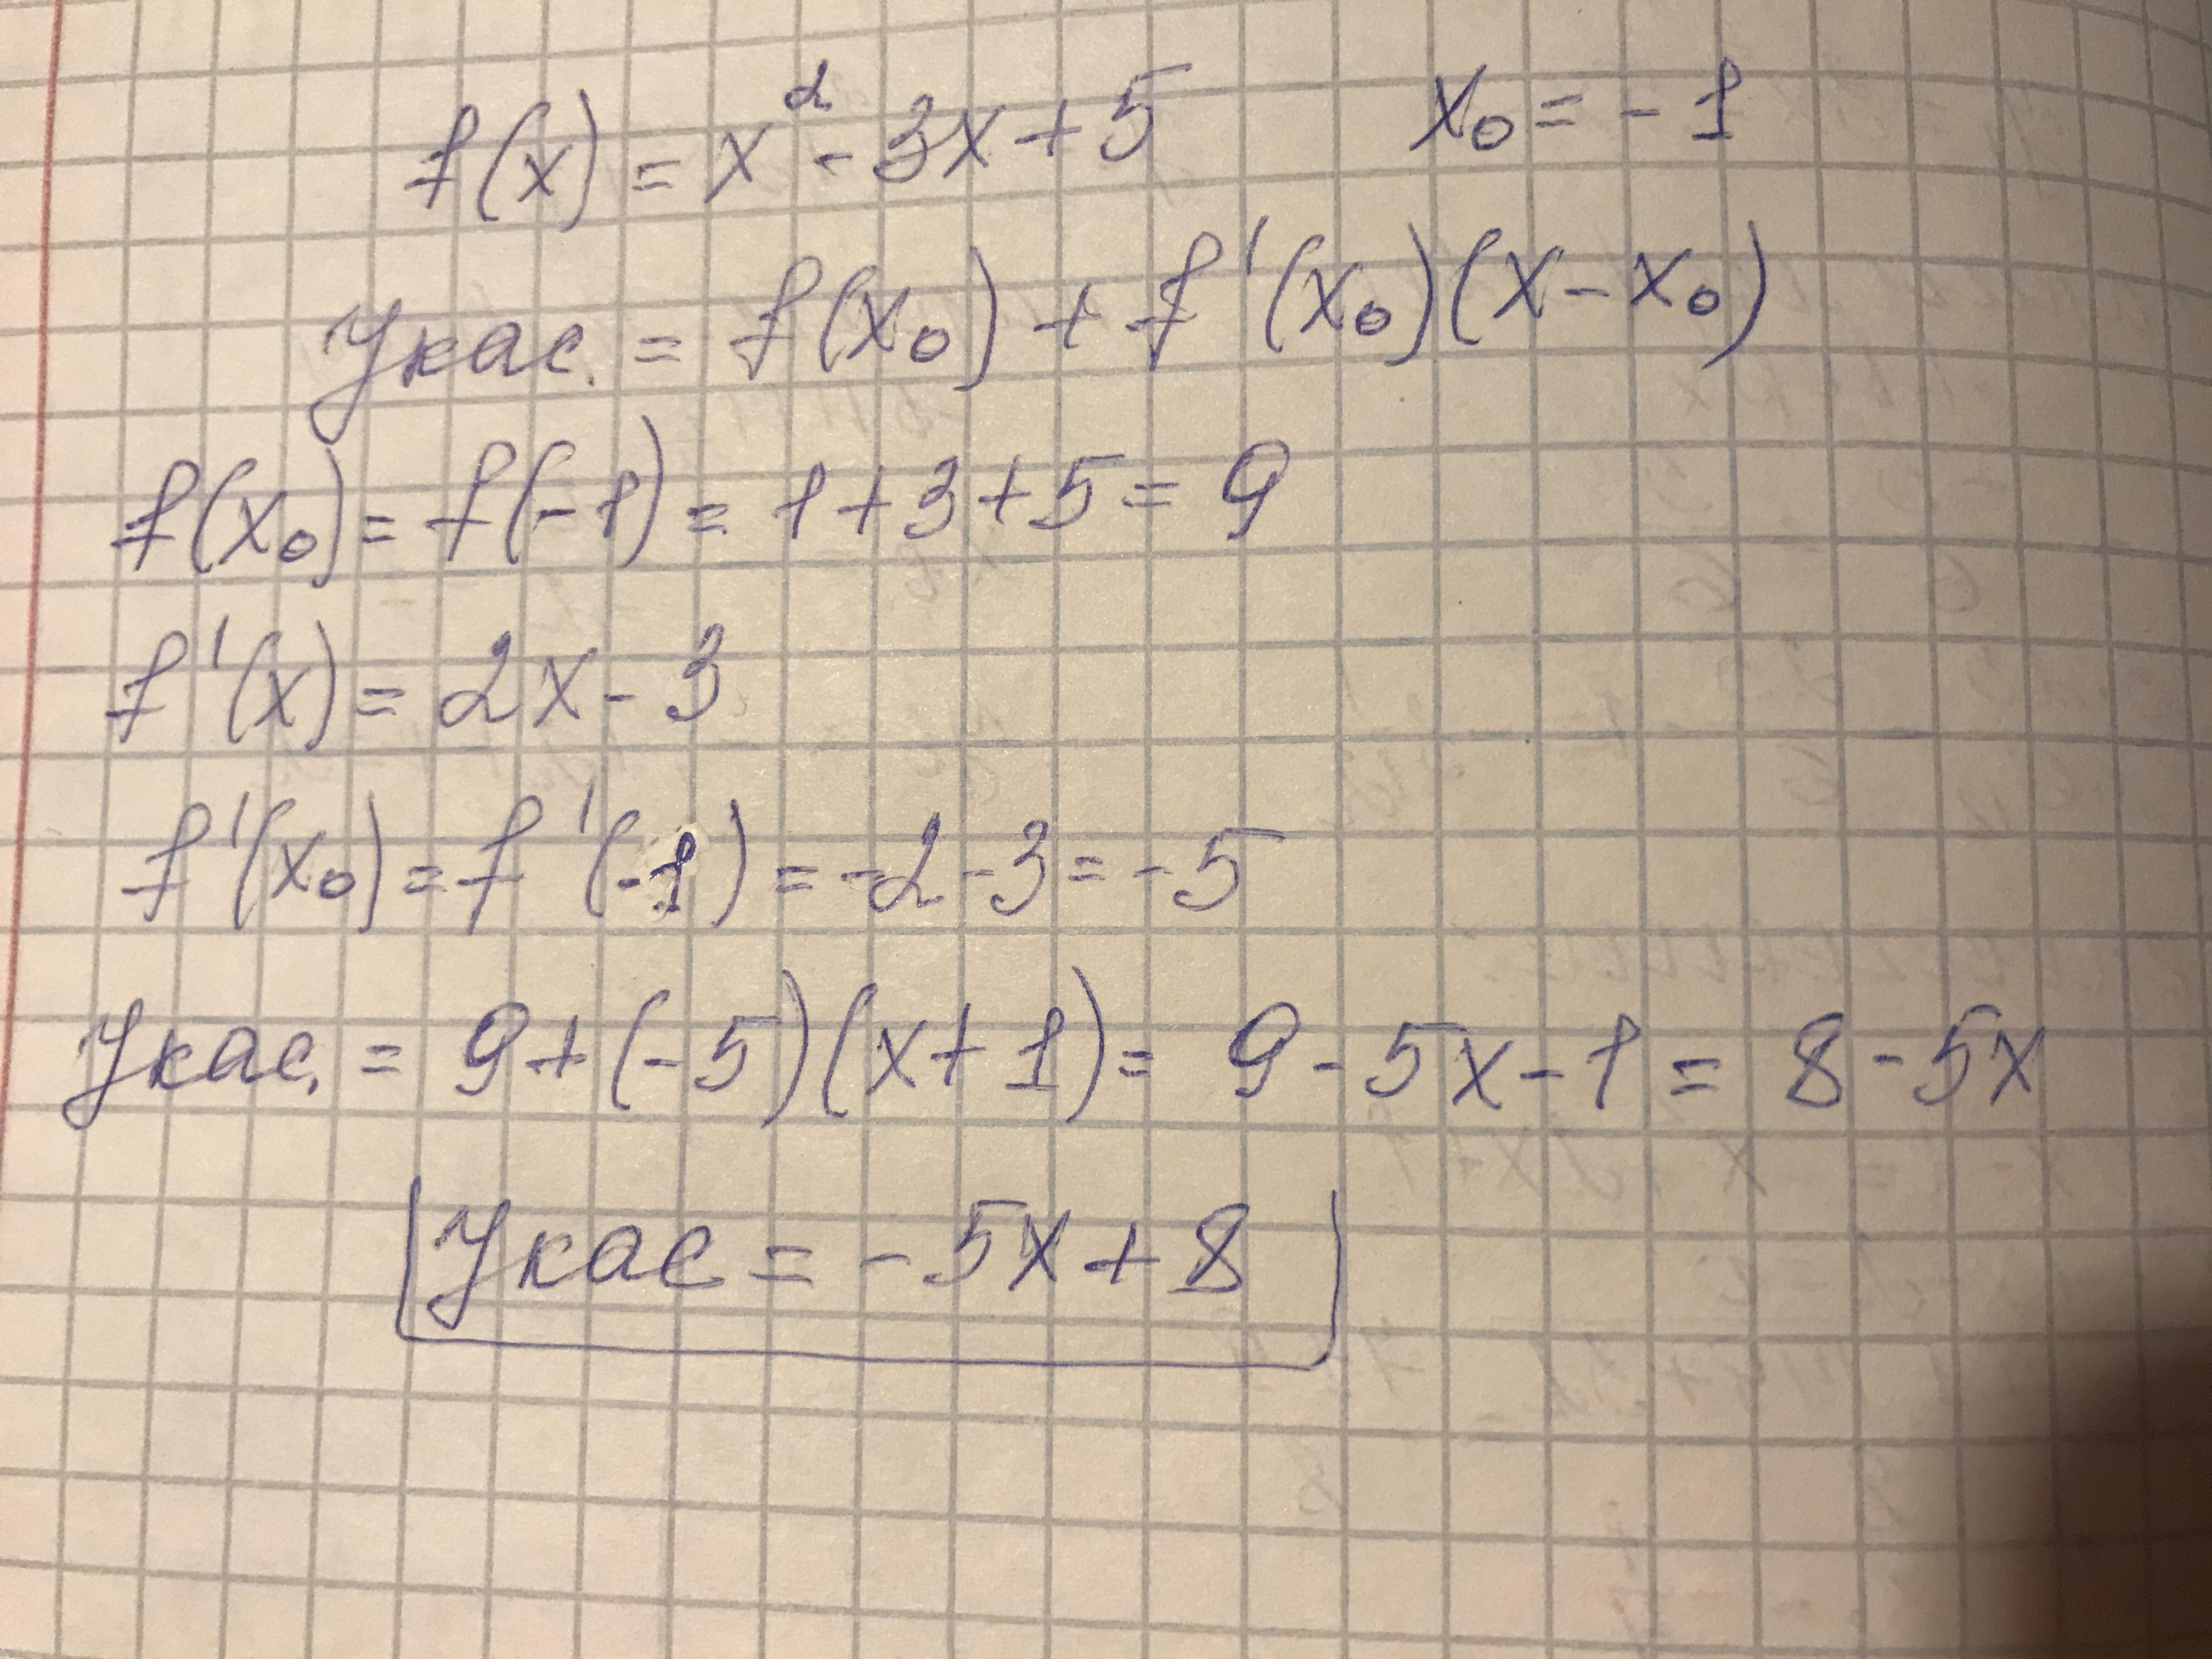 f(x) = x² - 3x + 5 x₀ = - 1
yкас. = f(x₀) + f'(x₀)(x - x₀)
f(x₀) = f(-1) = 1 + 3 + 5 = 9
f'(x) = 2x - 3
f'(x₀) = f'(-1) = -2 - 3 = -5
yкас. = 9 + (-5)(x + 1) = 9 - 5x - 1 = 8 - 5x
yкас = - 5x + 8